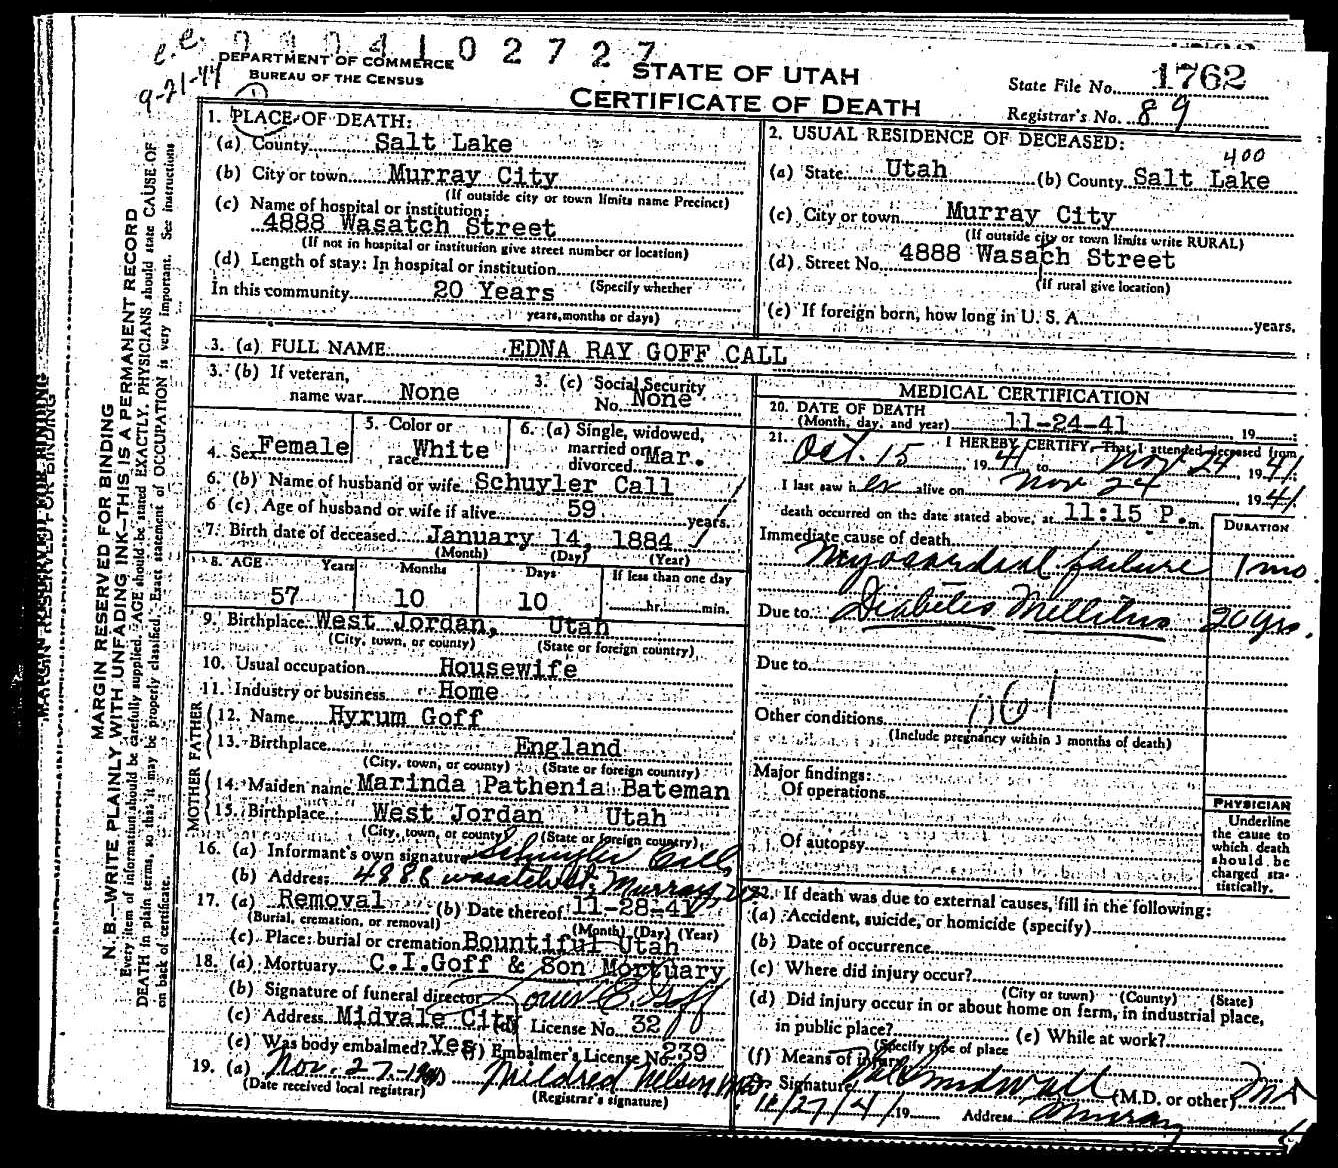 e. e.
9-21-44
0904102727
DEPARTMENT OF COMMERCE
BUREAU OF THE CENSUS
STATE OF UTAH
CERTIFICATE OF DEATH
State File No. 1762
Registrar's No. 89
1
1. PLACE OF DEATH:
(a) County Salt Lake
(b) City or town Murray City
(If outside city or town limits name Precinct)
(c) Name of hospital or institution:
4888 Wasatch Street
(If not in hospital or institution give street number or location)
(d) Length of stay: In hospital or institution
(Specify whether
In this community 20 Years
years, months or days)
2. USUAL RESIDENCE OF DECEASED:
400
(a) State Utah (b) County Salt Lake
(c) City or town Murray City
(If outside city or town limits write RURAL)
(d) Street No. 4888 Wasach Street
(If rural give location)
(e) If foreign born, how long in U. S. A. years.
3. (a) FULL NAME EDNA RAY GOFF CALL
3. (b) If veteran,
name war None
3. (c) Social Security
No. None
4. Sex Female
5. Color or
race White
6. (a) Single, widowed,
married or
divorced Mar.
6. (b) Name of husband or wife Schuyler Call
6 (c) Age of husband or wife if alive 59 years.
7. Birth date of deceased January 14, 1884
(Month) (Day) (Year)
8. AGE Years Months Days If less than one day
57 10 10 hr. min.
9. Birthplace West Jordan, Utah
(City, town, or county) (State or foreign country)
10. Usual occupation Housewife
11. Industry or business Home
FATHER
12. Name Hyrum Goff
13. Birthplace England
(City, town, or county) (State or foreign country)
MOTHER
14. Maiden name Marinda Pathenia Bateman
15. Birthplace West Jordan Utah
(City, town, or county) (State or foreign country)
16. (a) Informant's own signature Schuyler Call
(b) Address 4888 Wasatch St. Murray
17. (a) Removal (b) Date thereof 11-28-41
(Burial, cremation, or removal) (Month) (Day) (Year)
(c) Place: burial or cremation Bountiful Utah
18. (a) Mortuary C.I.Goff & Son Mortuary
(b) Signature of funeral director Louis C. Goff
(c) Address Midvale City (d) License No. 32
(e) Was body embalmed? Yes (f) Embalmer's License No. 239
19. (a) Nov. 27-1941 Mildred Nelson
(Date received local registrar) (Registrar's signature)
MEDICAL CERTIFICATION
20. DATE OF DEATH
(Month, day, and year) 11-24-41 19
21. I HEREBY CERTIFY, That I attended deceased from
Oct. 15, 1941 to Nov 24, 1941.
I last saw her alive on Nov 24 1941.
death occurred on the date stated above, at 11:15 P. m.
DURATION
Immediate cause of death
Myocardial failure 1 mo
Due to Diabetes Mellitus 20 yrs.
Due to
061
Other conditions
(Include pregnancy within 3 months of death)
Major findings:
Of operations
Of autopsy
PHYSICIAN
Underline
the cause to
which death
should be
charged sta-
tistically.
22. If death was due to external causes, fill in the following:
(a) Accident, suicide, or homicide (specify)
(b) Date of occurrence
(c) Where did injury occur?
(City or town) (County) (State)
(d) Did injury occur in or about home on farm, in industrial place,
in public place? (e) While at work?
(Specify type of place
(f) Means of injury
Signature (M.D. or other) MD
11/27/41 19 Address Murray
MARGIN RESERVED FOR BINDING
N. B.—WRITE PLAINLY WITH UNFADING INK—THIS IS A PERMANENT RECORD
Every item of information should be carefully supplied. AGE should be stated EXACTLY. PHYSICIANS should state CAUSE OF
DEATH in plain terms, so that it may be properly classified. Exact statement of OCCUPATION is very important. See instructions
on back of certificate.
MARGIN RESERVED FOR BINDING